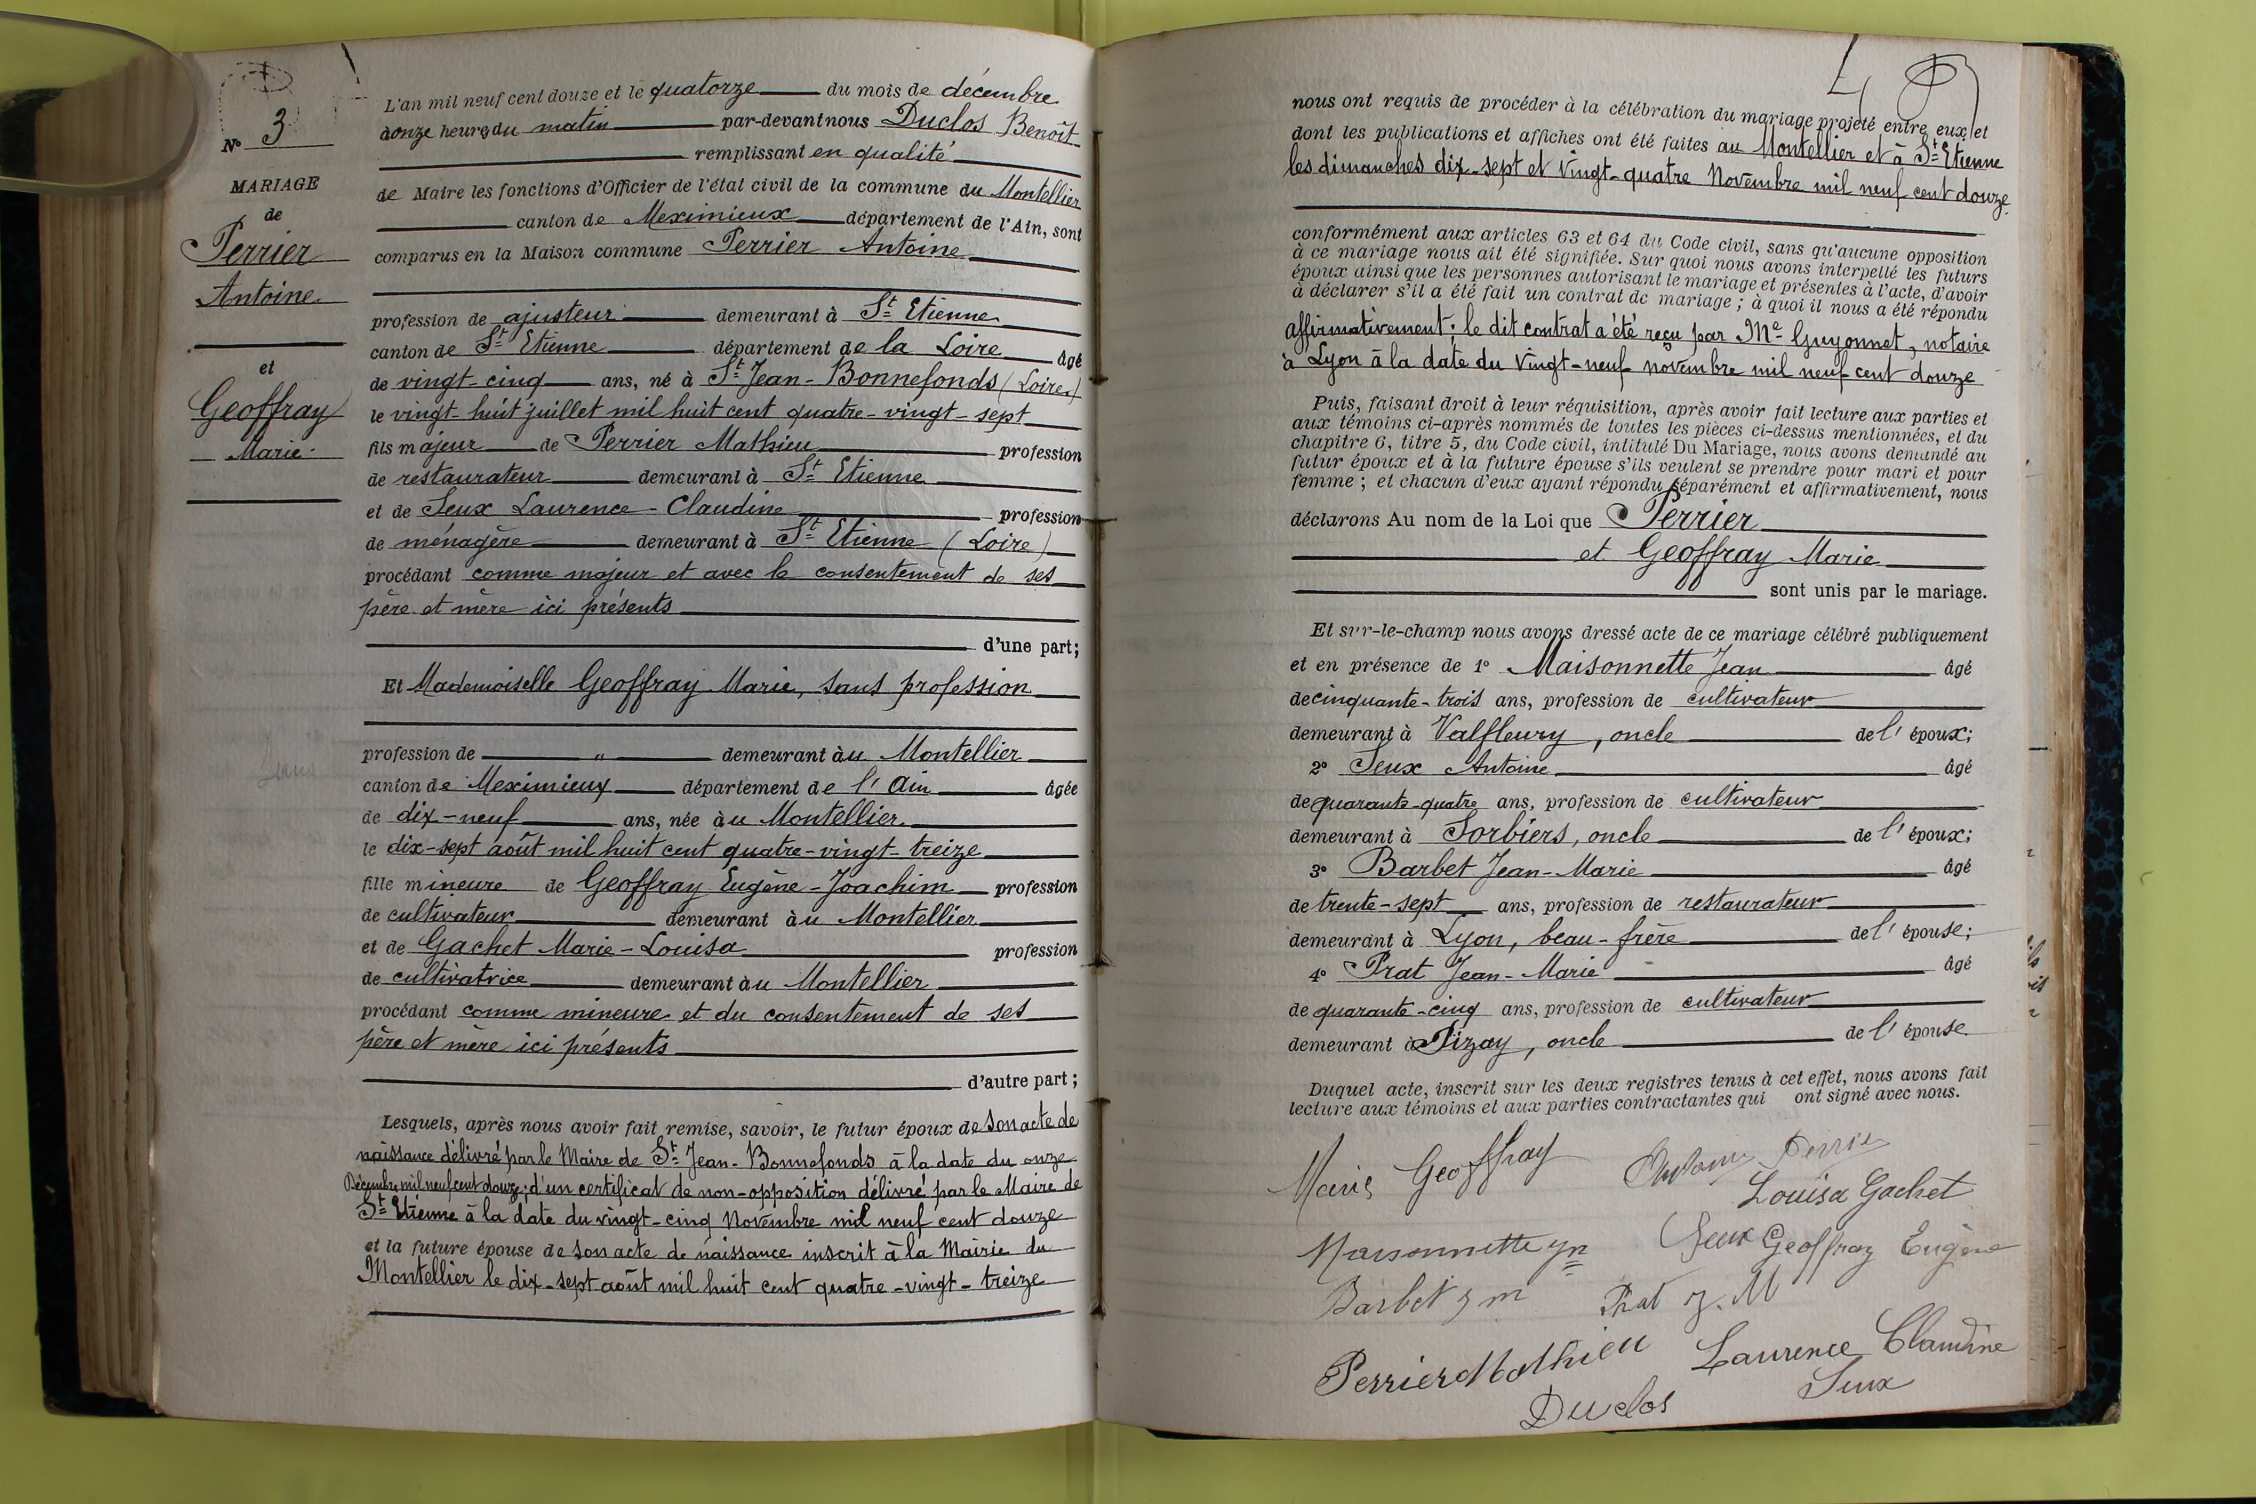 N° 3
MARIAGE
de
Perrier
Antoine
et
Geoffray
Marie
L'an mil neuf cent douze et le quatorze du mois de décembre
à onze heures du matin par-devant nous Duclos Benoît
remplissant en qualité
de Maire les fonctions d'Officier de l'état civil de la commune du Montellier
canton de Meximieux département de l'Ain, sont
comparus en la Maison commune Perrier Antoine
profession de ajusteur demeurant à St Etienne
canton de St Etienne département de la Loire âgé
de vingt-cinq ans, né à St Jean-Bonnefonds (Loire)
le vingt-huit juillet mil huit cent quatre-vingt-sept
fils majeur de Perrier Mathieu profession
de restaurateur demeurant à St Etienne
et de Seux Laurence-Claudine profession
de ménagère demeurant à St Etienne (Loire)
procédant comme majeur et avec le consentement de ses
père et mère ici présents
d'une part;
Et Mademoiselle Geoffray Marie, sans profession
profession de " demeurant au Montellier
canton de Meximieux département de l'Ain âgée
de dix-neuf ans, née au Montellier
le dix-sept août mil huit cent quatre-vingt-treize
fille mineure de Geoffray Eugène-Joachim profession
de cultivateur demeurant au Montellier
et de Gachet Marie-Louisa profession
de cultivatrice demeurant au Montellier
procédant comme mineure et du consentement de ses
père et mère ici présents
d'autre part;
Lesquels, après nous avoir fait remise, savoir, le futur époux de son acte de
naissance délivré par le Maire de St Jean-Bonnefonds à la date du onze
Décembre mil neuf cent douze; d'un certificat de non-opposition délivré par le Maire de
St Etienne à la date du vingt-cinq Novembre mil neuf cent douze
et la future épouse de son acte de naissance inscrit à la Mairie du
Montellier le dix-sept août mil huit cent quatre-vingt-treize
nous ont requis de procéder à la célébration du mariage projeté entre eux et
dont les publications et affiches ont été faites au Montellier et à St Etienne
les dimanches dix-sept et vingt-quatre Novembre mil neuf cent douze.
conformément aux articles 63 et 64 du Code civil, sans qu'aucune opposition
à ce mariage nous ait été signifiée. Sur quoi nous avons interpellé les futurs
époux ainsi que les personnes autorisant le mariage et présentes à l'acte, d'avoir
à déclarer s'il a été fait un contrat de mariage; à quoi il nous a été répondu
affirmativement; le dit contrat a été reçu par Me Guyonnet, notaire
à Lyon à la date du vingt-neuf novembre mil neuf cent douze
Puis, faisant droit à leur réquisition, après avoir fait lecture aux parties et
aux témoins ci-après nommés de toutes les pièces ci-dessus mentionnées, et du
chapitre 6, titre 5, du Code civil, intitulé Du Mariage, nous avons demandé au
futur époux et à la future épouse s'ils veulent se prendre pour mari et pour
femme; et chacun d'eux ayant répondu séparément et affirmativement, nous
déclarons Au nom de la Loi que Perrier
et Geoffray Marie
sont unis par le mariage.
Et sur-le-champ nous avons dressé acte de ce mariage célébré publiquement
et en présence de 1° Maisonnette Jean âgé
de cinquante-trois ans, profession de cultivateur
demeurant à Valfleury, oncle de l'époux;
2° Seux Antoine âgé
de quarante-quatre ans, profession de cultivateur
demeurant à Sorbiers, oncle de l'époux;
3° Barbet Jean-Marie âgé
de trente-sept ans, profession de restaurateur
demeurant à Lyon, beau-frère de l'épouse;
4° Prat Jean-Marie âgé
de quarante-cinq ans, profession de cultivateur
demeurant à Pizay, oncle de l'épouse
Duquel acte, inscrit sur les deux registres tenus à cet effet, nous avons fait
lecture aux témoins et aux parties contractantes qui ont signé avec nous.
Marie Geoffray Antoine Perrier
Louisa Gachet
Maisonnette Seux Geoffray Eugène
Barbet J m Prat J. M
Perrier Mathieu Laurence Claudine
Seux
Duclos